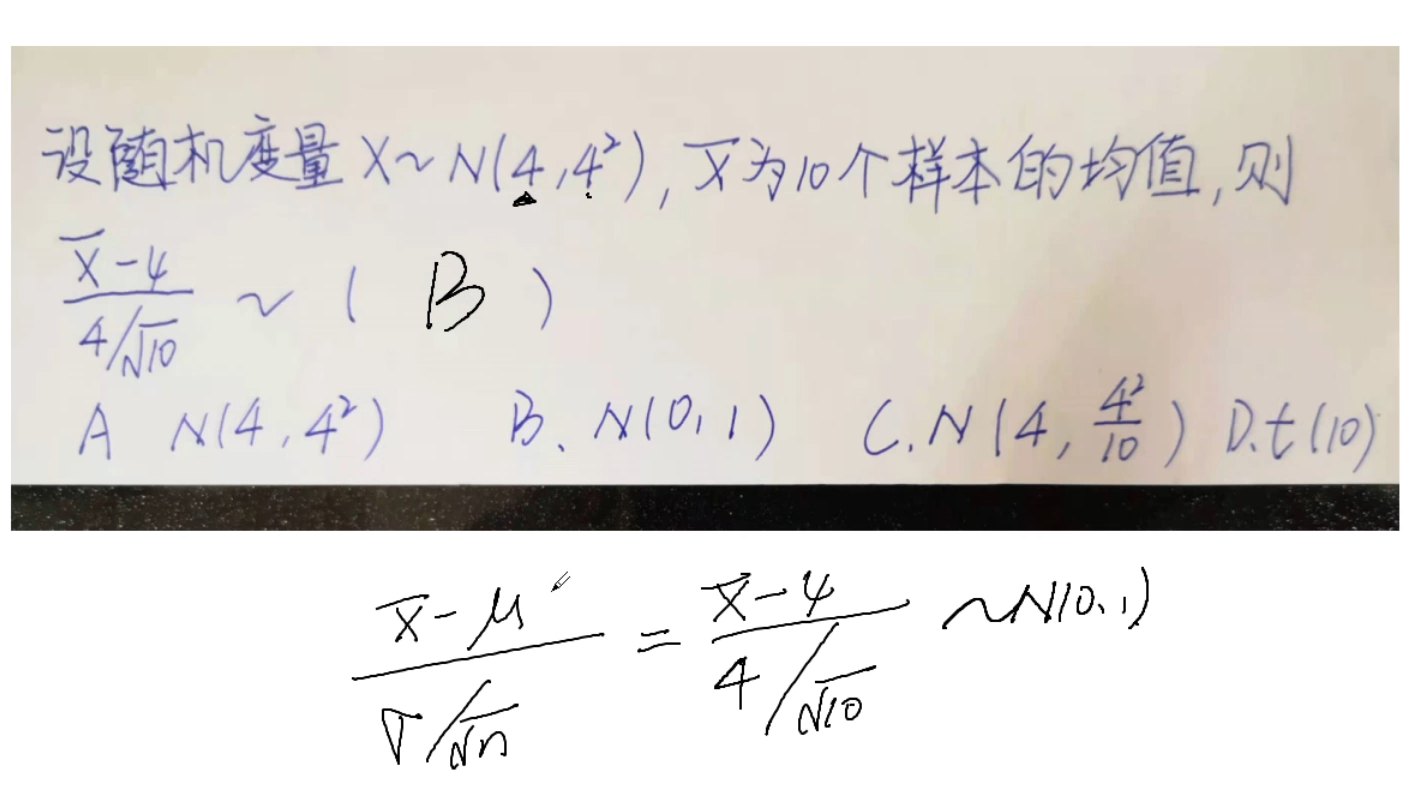 设随机变量 X~N(4,4²), X̄为10个样本的均值,则
(X̄-4)/(4/√10) ~ ( B )
A N(4,4²) B、N(0,1) C.N(4,4²/10) D.t(10)
(X̄-μ)/(σ/√n) = (X̄-4)/(4/√10) ~N(0,1)